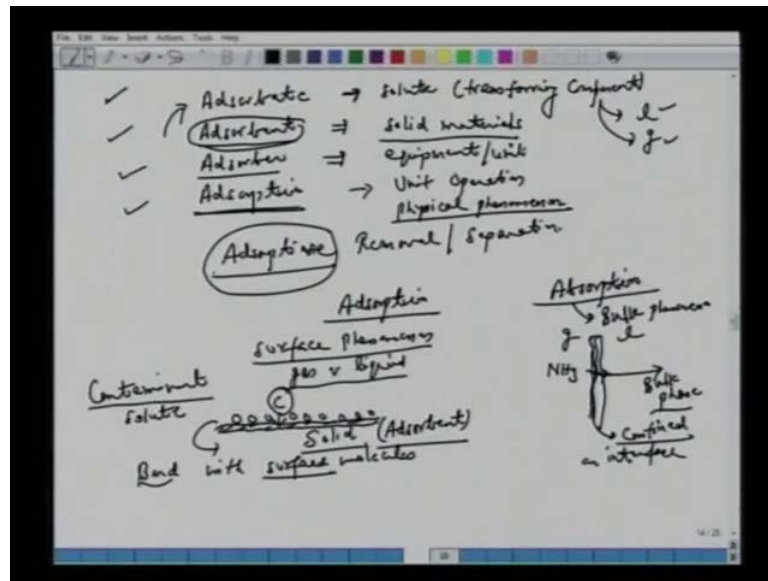 File Edit View Insert Actions Tools Help
Adsorbate → solute (transferring Component)
→ l
→ g
Adsorbent ⇒ solid materials
Adsorber ⇒ equipments/unit
Adsorption → Unit Operation
Physical phenomenon
Adsorptive Removal / Separation
Adsorption
surface phenomenon
gas v liquid
Contaminant
solute
C
Solid (Adsorbent)
Bond with surface molecules
Absorption
→ Bulk phenomenon
g l
NH3
Bulk phase
→ Confined
an interface